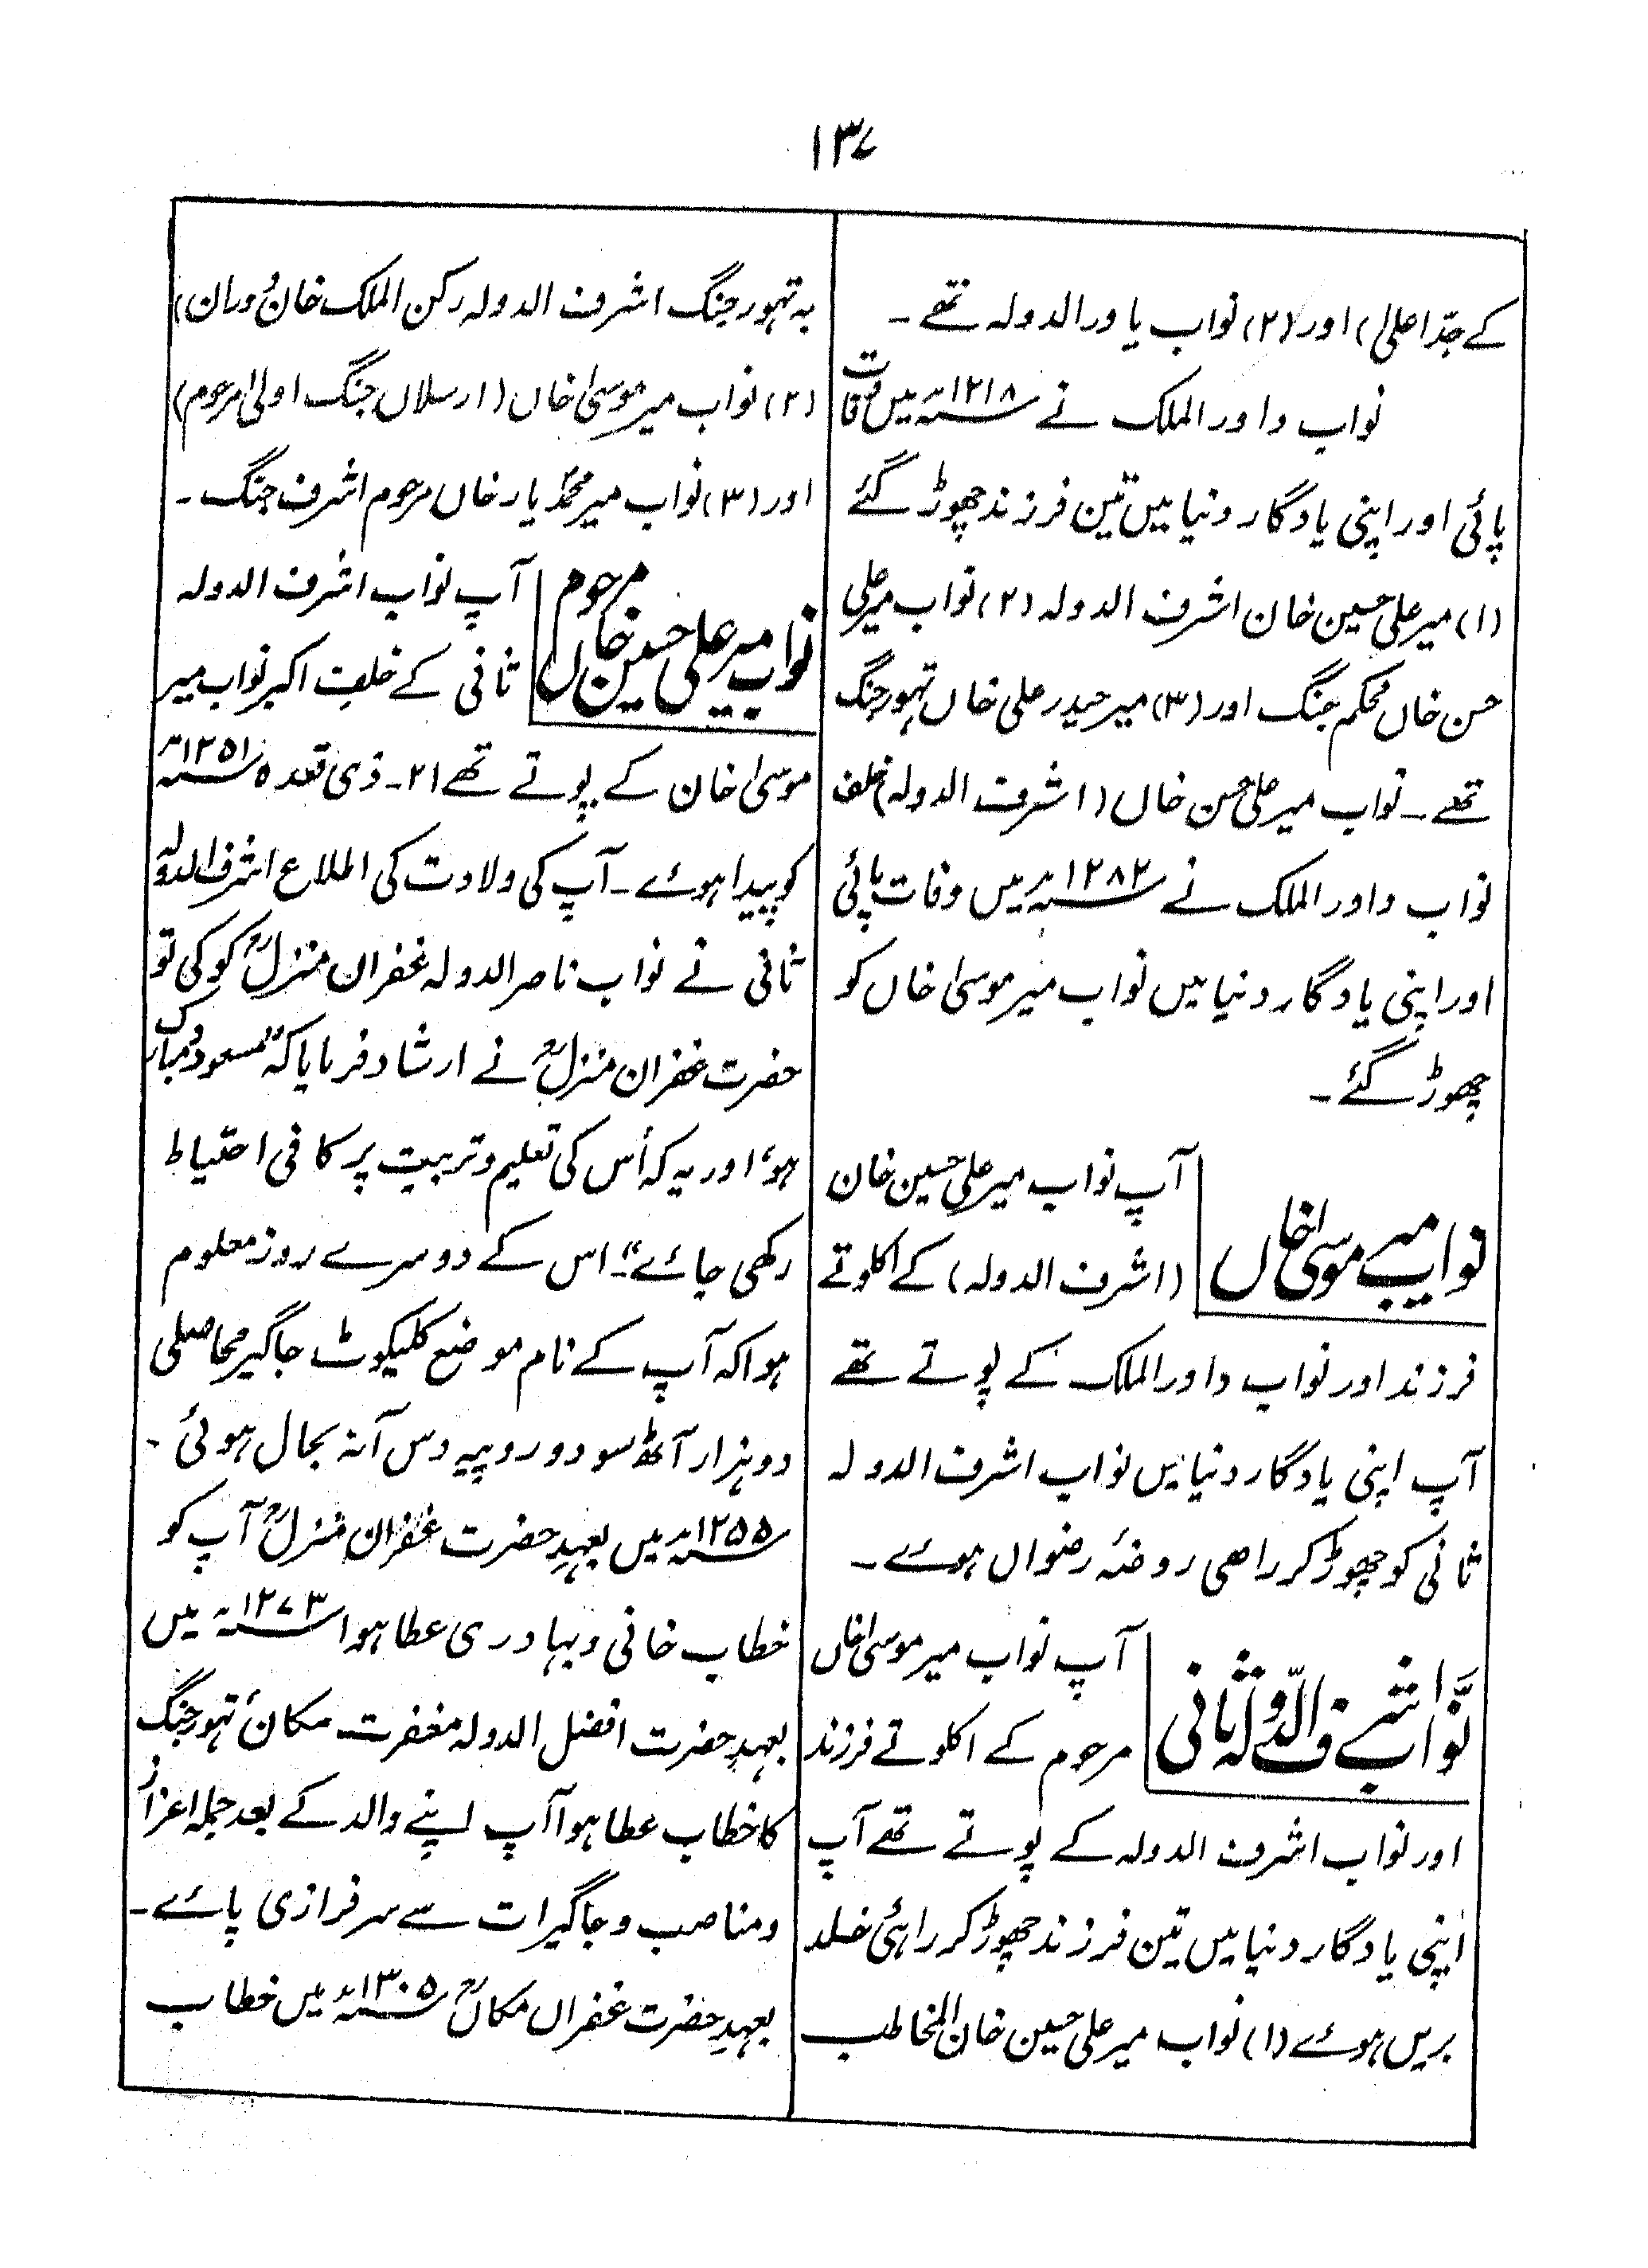 ۱۳۷
کے جدّ اعلیٰ) اور (۲) نواب یاور الدولہ تھے۔
نواب داور الملک نے ۱۲۱۸؁ھ میں وفات
پائی اور اپنی یادگار دنیا میں تین فرزند چھوڑ گئے
(۱) میر علی حسین خان اشرف الدولہ (۲) نواب میر علی
حسن خاں محکم جنگ اور (۳) میر حیدر علی خاں تہور جنگ
تھے۔ نواب میر علی حسن خاں (اشرف الدولہ) خلف
نواب داور الملک نے ۱۲۸۲؁ھ میں وفات پائی
اور اپنی یادگار دنیا میں نواب میر موسیٰ خاں کو
چھوڑ گئے۔
نواب میر موسیٰ خاں
آپ نواب میر علی حسین خان
(اشرف الدولہ) کے اکلوتے
فرزند اور نواب داور الملک کے پوتے تھے
آپ اپنی یادگار دنیا میں نواب اشرف الدولہ
ثانی کو چھوڑ کر راھی روضۂ رضواں ہوے۔
نواب اشرف الدولہ ثانی
آپ نواب میر موسیٰ خاں
مرحوم کے اکلوتے فرزند
اور نواب اشرف الدولہ کے پوتے تھے آپ
اپنی یادگار دنیا میں تین فرزند چھوڑ کر راہئی خلد
بریں ہوے (۱) نواب میر علی حسین خان المخاطب
بہ تہور جنگ اشرف الدولہ رکن الملک خان دوران)
(۲) نواب میر موسیٰ خاں (ارسلاں جنگ اولیٰ مرحوم)
اور (۳) نواب میر محمد یار خاں مرحوم اشرف جنگ۔
نواب میر علی حسین خاں مرحوم
آپ نواب اشرف الدولہ
ثانی کے خلفِ اکبر نواب میر
موسیٰ خان کے پوتے تھے ۲۱۔ ذی قعدہ ۱۲۵۱؁ھ
کو پیدا ہوے۔ آپ کی ولادت کی اطلاع اشرف الدولہ
ثانی نے نواب ناصر الدولہ غفران منزلؒ کو کی تو
حضرت غفران منزلؒ نے ارشاد فرمایا کہ ”مسعود و مبارک
ہو“ اور یہ کہ اُس کی تعلیم و تربیت پر کافی احتیاط
رکھی جاے“۔ اس کے دوسرے روز معلوم
ہوا کہ آپ کے نام موضع کلیکوٹ جاگیر محاصلی
دو ہزار آٹھ سو دو روپیہ دس آنہ بحال ہوئی۔
۱۲۵۵؁ھ میں بعہدِ حضرت غفران منزلؒ آپ کو
خطاب خانی و بہادری عطا ہوا ۱۲۷۳؁ھ میں
بعہدِ حضرت افضل الدولہ مغفرت مکانؒ تہور جنگ
کا خطاب عطا ہوا آپ اپنے والد کے بعد جملہ اعزاز
و مناصب و جاگیرات سے سرفرازی پاے۔
بعہدِ حضرت غفراں مکاںؒ ۱۳۰۵؁ھ میں خطاب